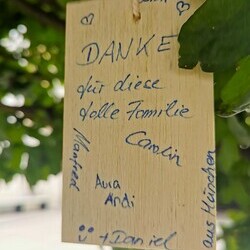 DANKE
für diese
tolle Familie
Carolin
Manfred
Aura
Andi
+ Daniel
aus München